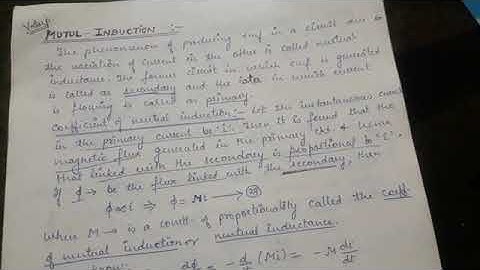 MUTUL - INDUCTION :-
The phenomenon of producing emf in a circuit due to
the variation of current in the other is called mutual
inductance. The former circuit in which emf is generated
is called as secondary and the in which current
is flowing is called as primary.
Coefficient of mutual induction:- Let the instantaneous
in the primary current be 'i'. Then it is found that the
magnetic flux generated in the primary ckt & hence
that linked with the secondary is proportional to 'i'.
If ϕ → be the flux linked with the secondary, then
ϕ ∝ i ⇒ ϕ = Mi →
Where M → is a constt- of proportionality called the coeff-
of mutual induction or mutual inductance.
dϕ = - d (Mi) = - M di
dt